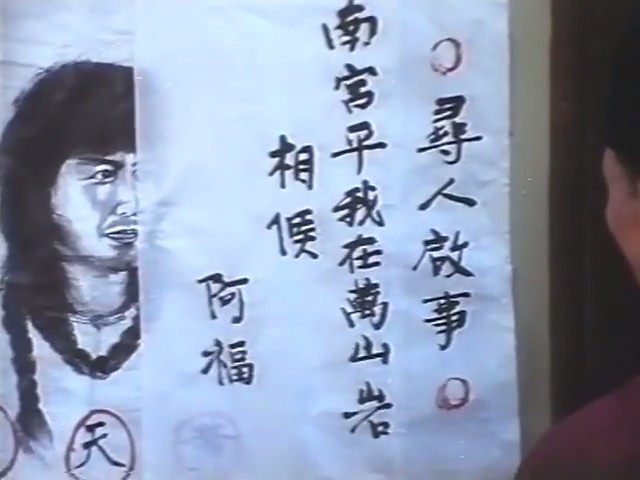 尋人啟事
南宮平我在萬山岩
相候
阿福
天